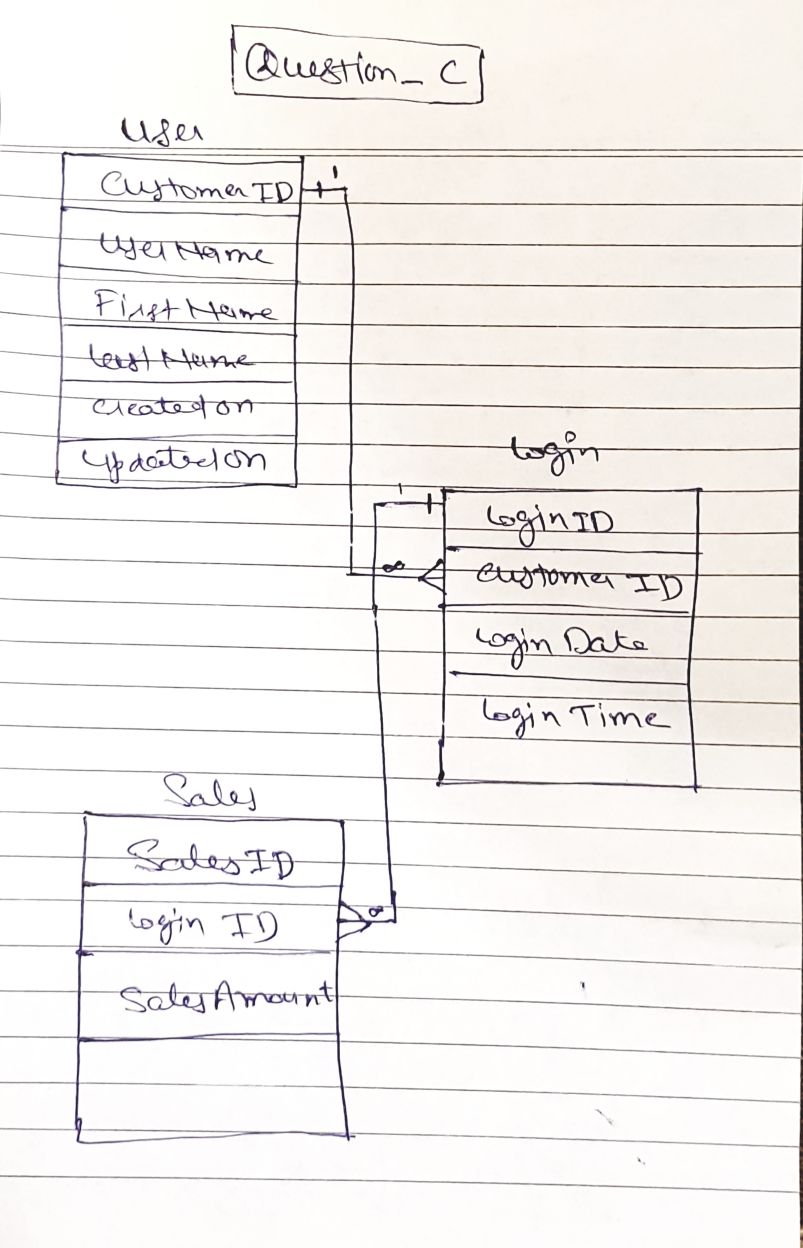 Question_C
User
CustomerID
UserName
FirstName
LastName
Createdon
UpdatedOn
1
Login
1
LoginID
∞
CustomerID
Login Date
Login Time
Sales
SalesID
Login ID
∞
SalesAmount